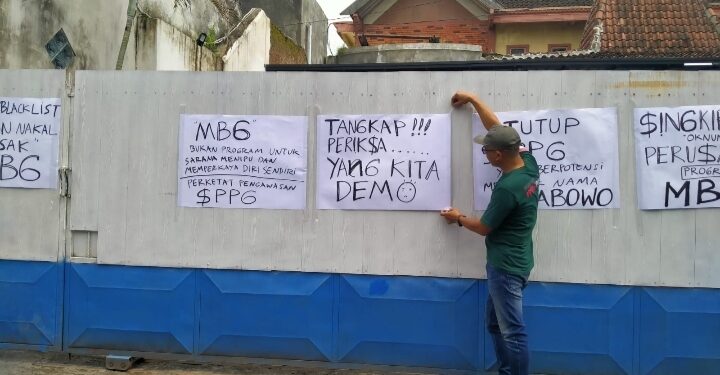 BLACKLIST
N NAKAL
SAK"
BG
"MBG"
BUKAN PROGRAM UNTUK
SARANA MENIPU DAN
MEMPERKAYA DIRI SENDIRI
PERKETAT PENGAWASAN
$PPG
TANGKAP !!!
PERIK$A......
YANG KITA
DEMO
TUTUP
PPG
BERPOTENSI
NAMA
ABOWO
$INGKIR
"OKNUM
PERU$A
PROGR
MB